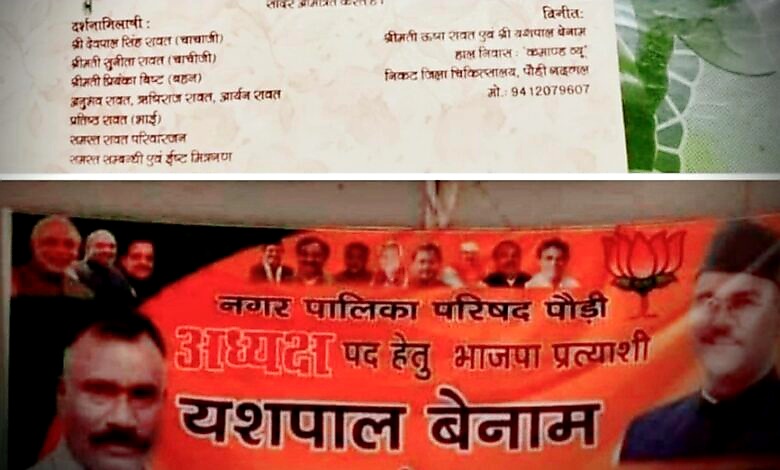 सादर आमंत्रित करते हैं।
दर्शनाभिलाषी :
श्री देवपाल सिंह रावत (चाचाजी)
श्रीमती सुनीता रावत (चाचीजी)
श्रीमती प्रियंका बिष्ट (बहन)
अनुभव रावत, ऋषिराज रावत, आर्यन रावत
प्रतिष्ठ रावत (भाई)
समस्त रावत परिवारजन
समस्त सम्बन्धी एवं ईष्ट मित्रगण
विनीत:
श्रीमती ऊषा रावत एवं श्री यशपाल बेनाम
हाल निवास : 'कमाण्ड व्यू'
निकट जिला चिकित्सालय, पौड़ी गढ़वाल
मो.: 9412079607
नगर पालिका परिषद पौड़ी
अध्यक्ष पद हेतु भाजपा प्रत्याशी
यशपाल बेनाम